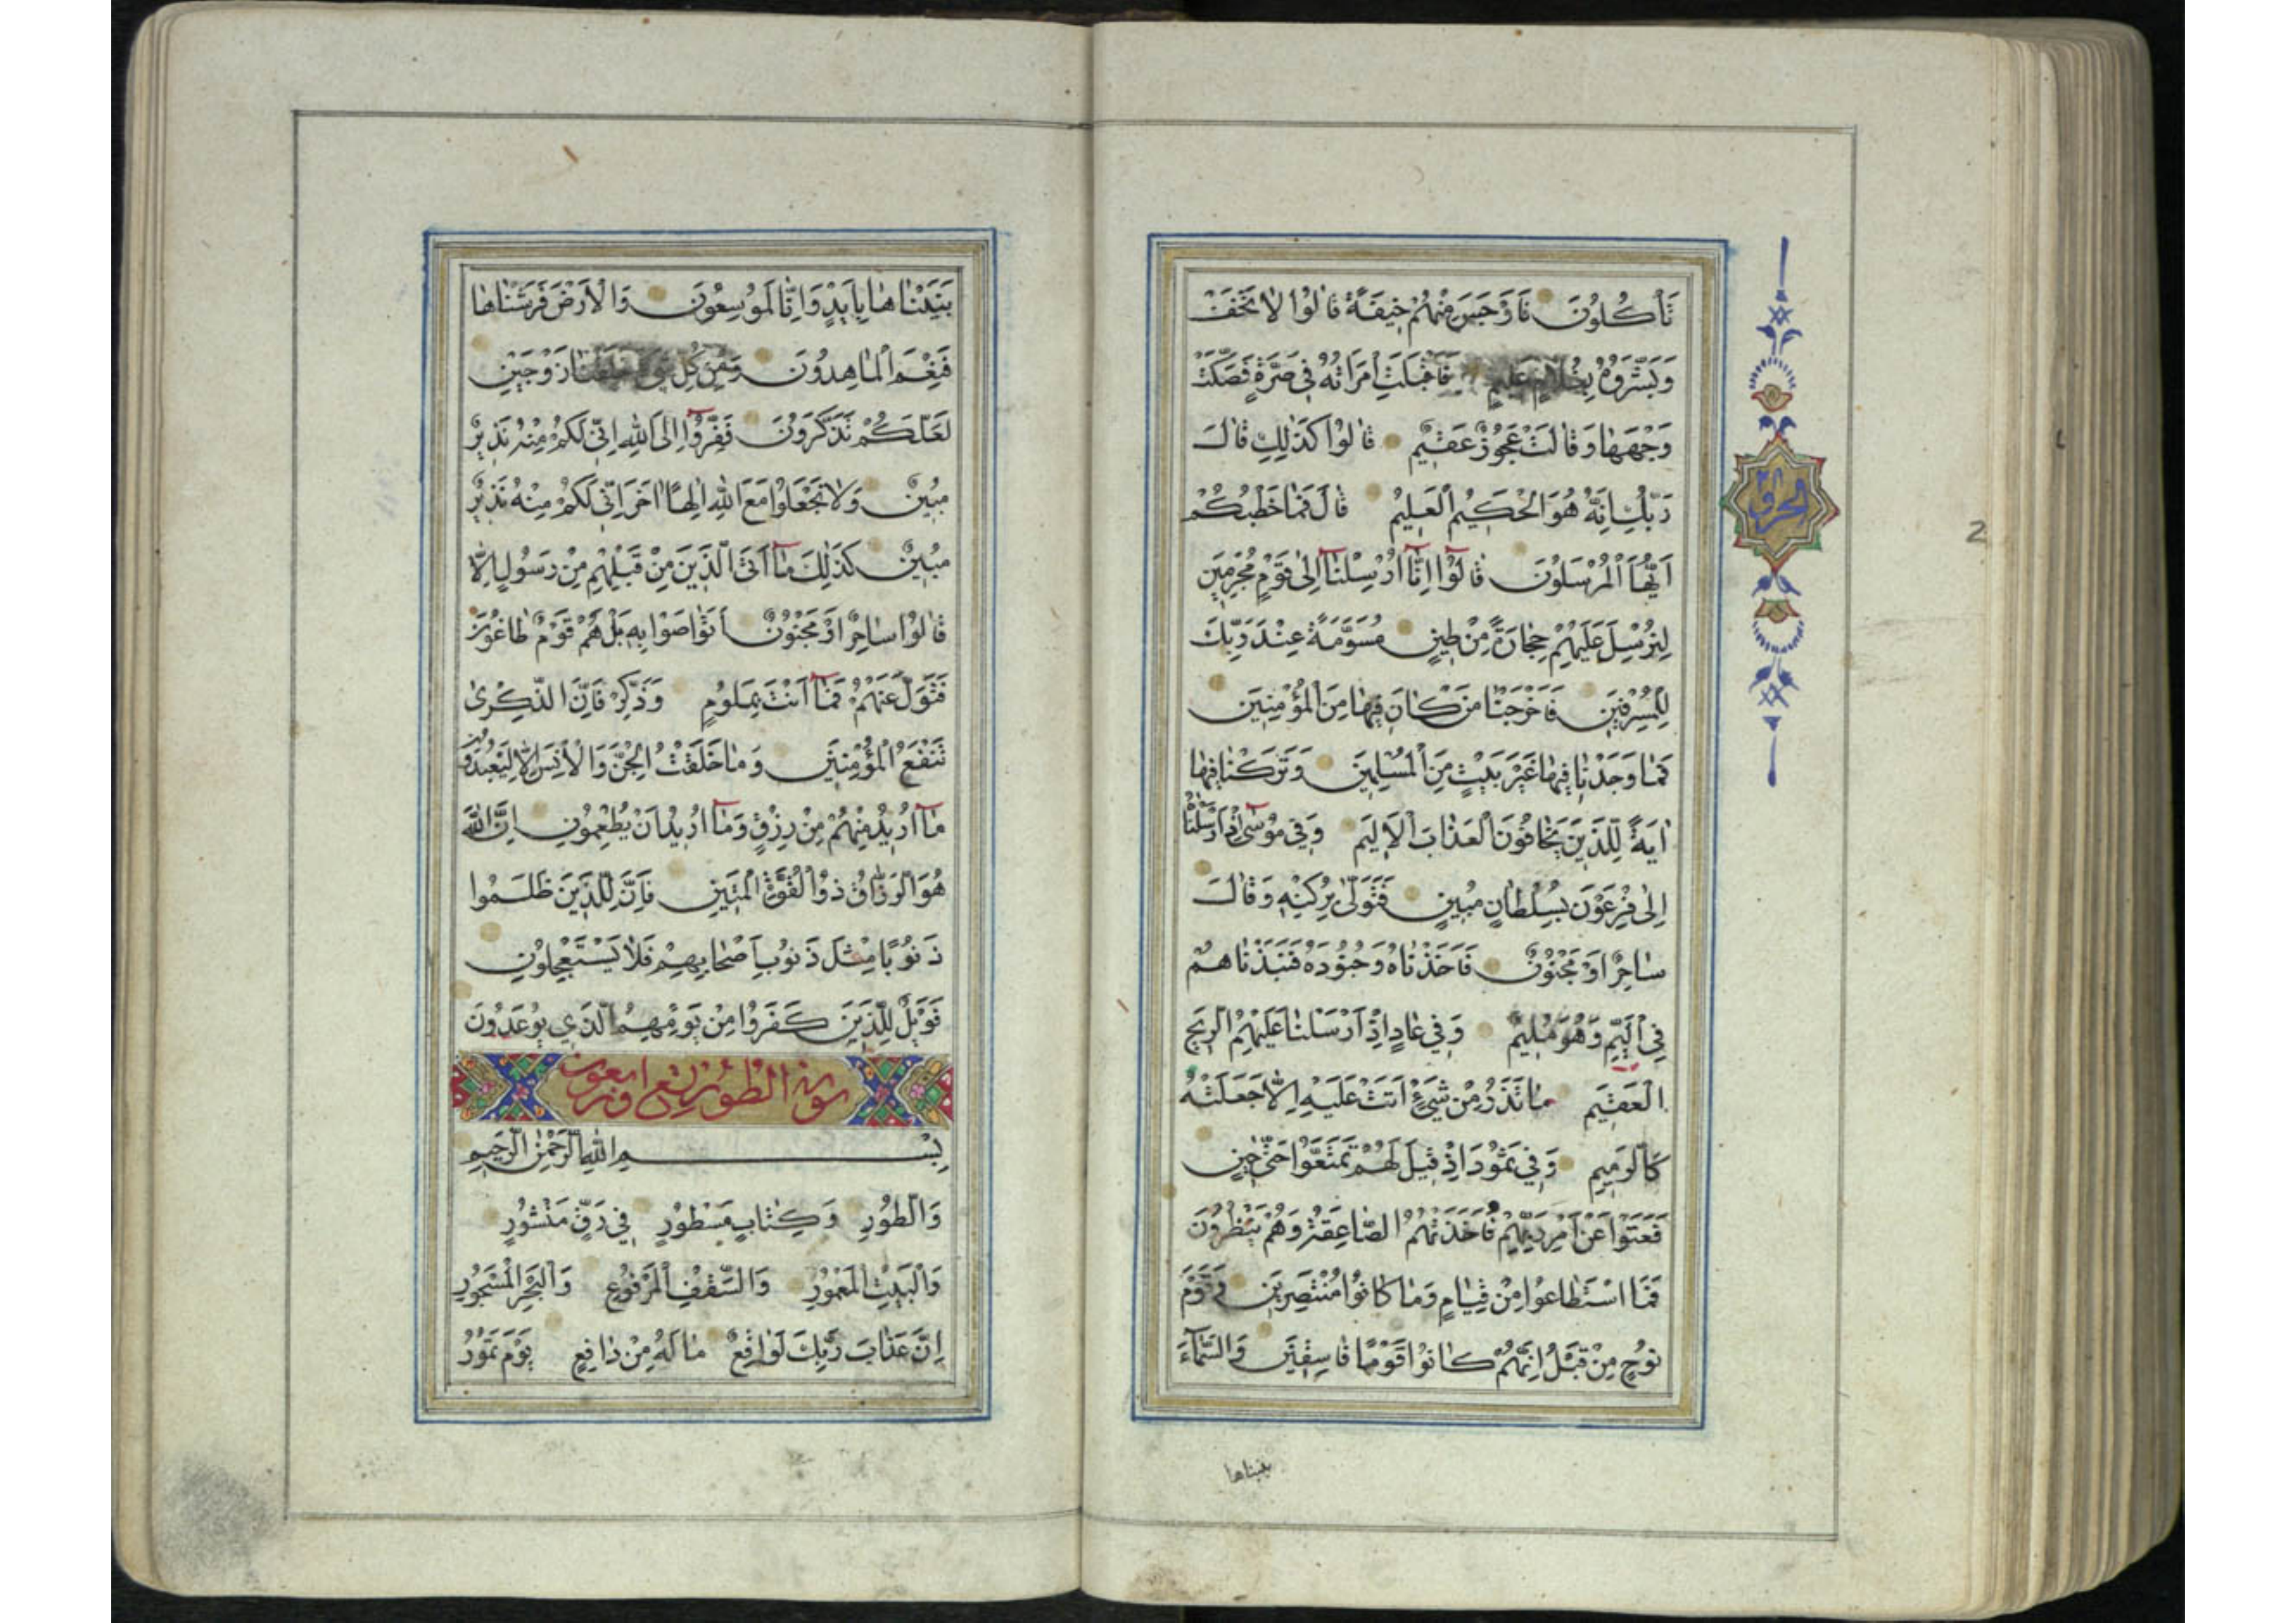 تَأْكُلُونَ فَاَوْجَسَ مِنْهُمْ خِيفَةً قَالُوا لَا تَخَفْ
وَبَشَّرُوهُ بِغُلَامٍ عَلِيمٍ فَاَقْبَلَتِ امْرَاَتُهُ فِي صَرَّةٍ فَصَكَّتْ
وَجْهَهَا وَقَالَتْ عَجُوزٌ عَقِيمٌ قَالُوا كَذٰلِكِ قَالَ
رَبُّكِ اِنَّهُ هُوَ الْحَكِيمُ الْعَلِيمُ قَالَ فَمَا خَطْبُكُمْ
اَيُّهَا الْمُرْسَلُونَ قَالُوٓا اِنَّٓا اُرْسِلْنَٓا اِلٰى قَوْمٍ مُجْرِمِينَ
لِنُرْسِلَ عَلَيْهِمْ حِجَارَةً مِنْ طِينٍ مُسَوَّمَةً عِنْدَ رَبِّكَ
لِلْمُسْرِفِينَ فَاَخْرَجْنَا مَنْ كَانَ فِيهَا مِنَ الْمُؤْمِنِينَ
فَمَا وَجَدْنَا فِيهَا غَيْرَ بَيْتٍ مِنَ الْمُسْلِمِينَ وَتَرَكْنَا فِيهَا
اٰيَةً لِلَّذِينَ يَخَافُونَ الْعَذَابَ الْاَلِيمَ وَفِي مُوسٰٓى اِذْ اَرْسَلْنَاهُ
اِلٰى فِرْعَوْنَ بِسُلْطَانٍ مُبِينٍ فَتَوَلّٰى بِرُكْنِهِ وَقَالَ
سَاحِرٌ اَوْ مَجْنُونٌ فَاَخَذْنَاهُ وَجُنُودَهُ فَنَبَذْنَاهُمْ
فِي الْيَمِّ وَهُوَ مُلِيمٌ وَفِي عَادٍ اِذْ اَرْسَلْنَا عَلَيْهِمُ الرِّيحَ
الْعَقِيمَ مَا تَذَرُ مِنْ شَيْءٍ اَتَتْ عَلَيْهِ اِلَّا جَعَلَتْهُ
كَالرَّمِيمِ وَفِي ثَمُودَ اِذْ قِيلَ لَهُمْ تَمَتَّعُوا حَتّٰى حِينٍ
فَعَتَوْا عَنْ اَمْرِ رَبِّهِمْ فَاَخَذَتْهُمُ الصَّاعِقَةُ وَهُمْ يَنْظُرُونَ
فَمَا اسْتَطَاعُوا مِنْ قِيَامٍ وَمَا كَانُوا مُنْتَصِرِينَ وَقَوْمَ
نُوحٍ مِنْ قَبْلُ اِنَّهُمْ كَانُوا قَوْمًا فَاسِقِينَ وَالسَّمَٓاءَ
بنيناها
2
بَنَيْنَاهَا بِاَيْدٍ وَاِنَّا لَمُوسِعُونَ وَالْاَرْضَ فَرَشْنَاهَا
فَنِعْمَ الْمَاهِدُونَ وَمِنْ كُلِّ شَيْءٍ خَلَقْنَا زَوْجَيْنِ
لَعَلَّكُمْ تَذَكَّرُونَ فَفِرُّوٓا اِلَى اللّٰهِ اِنِّي لَكُمْ مِنْهُ نَذِيرٌ
مُبِينٌ وَلَا تَجْعَلُوا مَعَ اللّٰهِ اِلٰهًا اٰخَرَ اِنِّي لَكُمْ مِنْهُ نَذِيرٌ
مُبِينٌ كَذٰلِكَ مَٓا اَتَى الَّذِينَ مِنْ قَبْلِهِمْ مِنْ رَسُولٍ اِلَّا
قَالُوا سَاحِرٌ اَوْ مَجْنُونٌ اَتَوَاصَوْا بِهِ بَلْ هُمْ قَوْمٌ طَاغُونَ
فَتَوَلَّ عَنْهُمْ فَمَٓا اَنْتَ بِمَلُومٍ وَذَكِّرْ فَاِنَّ الذِّكْرٰى
تَنْفَعُ الْمُؤْمِنِينَ وَمَا خَلَقْتُ الْجِنَّ وَالْاِنْسَ اِلَّا لِيَعْبُدُونِ
مَٓا اُرِيدُ مِنْهُمْ مِنْ رِزْقٍ وَمَٓا اُرِيدُ اَنْ يُطْعِمُونِ اِنَّ اللّٰهَ
هُوَ الرَّزَّاقُ ذُو الْقُوَّةِ الْمَتِينُ فَاِنَّ لِلَّذِينَ ظَلَمُوا
ذَنُوبًا مِثْلَ ذَنُوبِ اَصْحَابِهِمْ فَلَا يَسْتَعْجِلُونِ
فَوَيْلٌ لِلَّذِينَ كَفَرُوا مِنْ يَوْمِهِمُ الَّذِي يُوعَدُونَ
سورة الطور
بِسْمِ اللّٰهِ الرَّحْمٰنِ الرَّحِيمِ
وَالطُّورِ وَكِتَابٍ مَسْطُورٍ فِي رَقٍّ مَنْشُورٍ
وَالْبَيْتِ الْمَعْمُورِ وَالسَّقْفِ الْمَرْفُوعِ وَالْبَحْرِ الْمَسْجُورِ
اِنَّ عَذَابَ رَبِّكَ لَوَاقِعٌ مَا لَهُ مِنْ دَافِعٍ يَوْمَ تَمُورُ